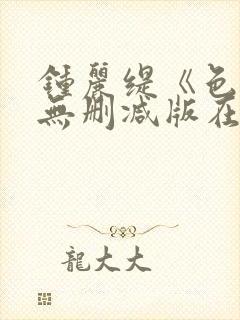 鍾麗缇《色
無删减版在
龍大大